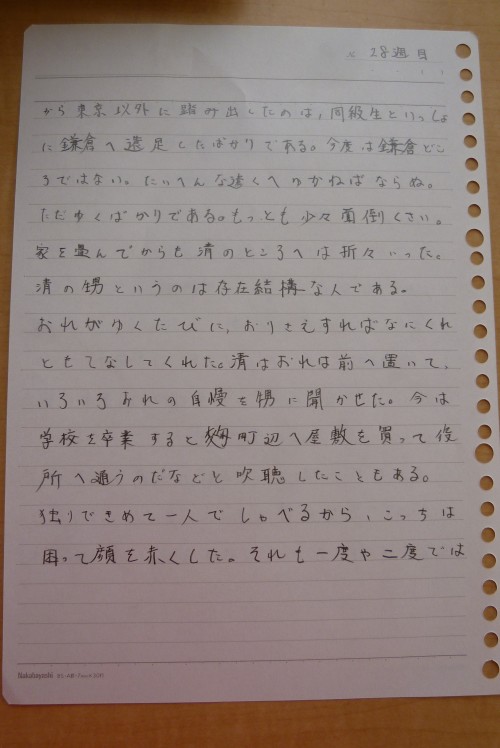 28週目
から東京以外に踏み出したのは、同級生といっしょ
に鎌倉へ遠足したばかりである。今度は鎌倉どこ
ろではない。たいへんな遠くへゆかねばならぬ。
ただゆくばかりである。もっとも少々面倒くさい。
家を畳んでからも清のところへは折々いった。
清の甥というのは存在結構な人である。
おれがゆくたびに、おりさえすればなにくれ
ともてなしてくれた。清はおれは前へ置いて、
いろいろおれの自慢を甥に聞かせた。今は
学校を卒業すると麹町辺へ屋敷を買って役
所へ通うのだなどと吹聴したこともある。
独りできめて一人でしゃべるから、こっちは
困って顔を赤くした。それも一度や二度では
Nakabayashi